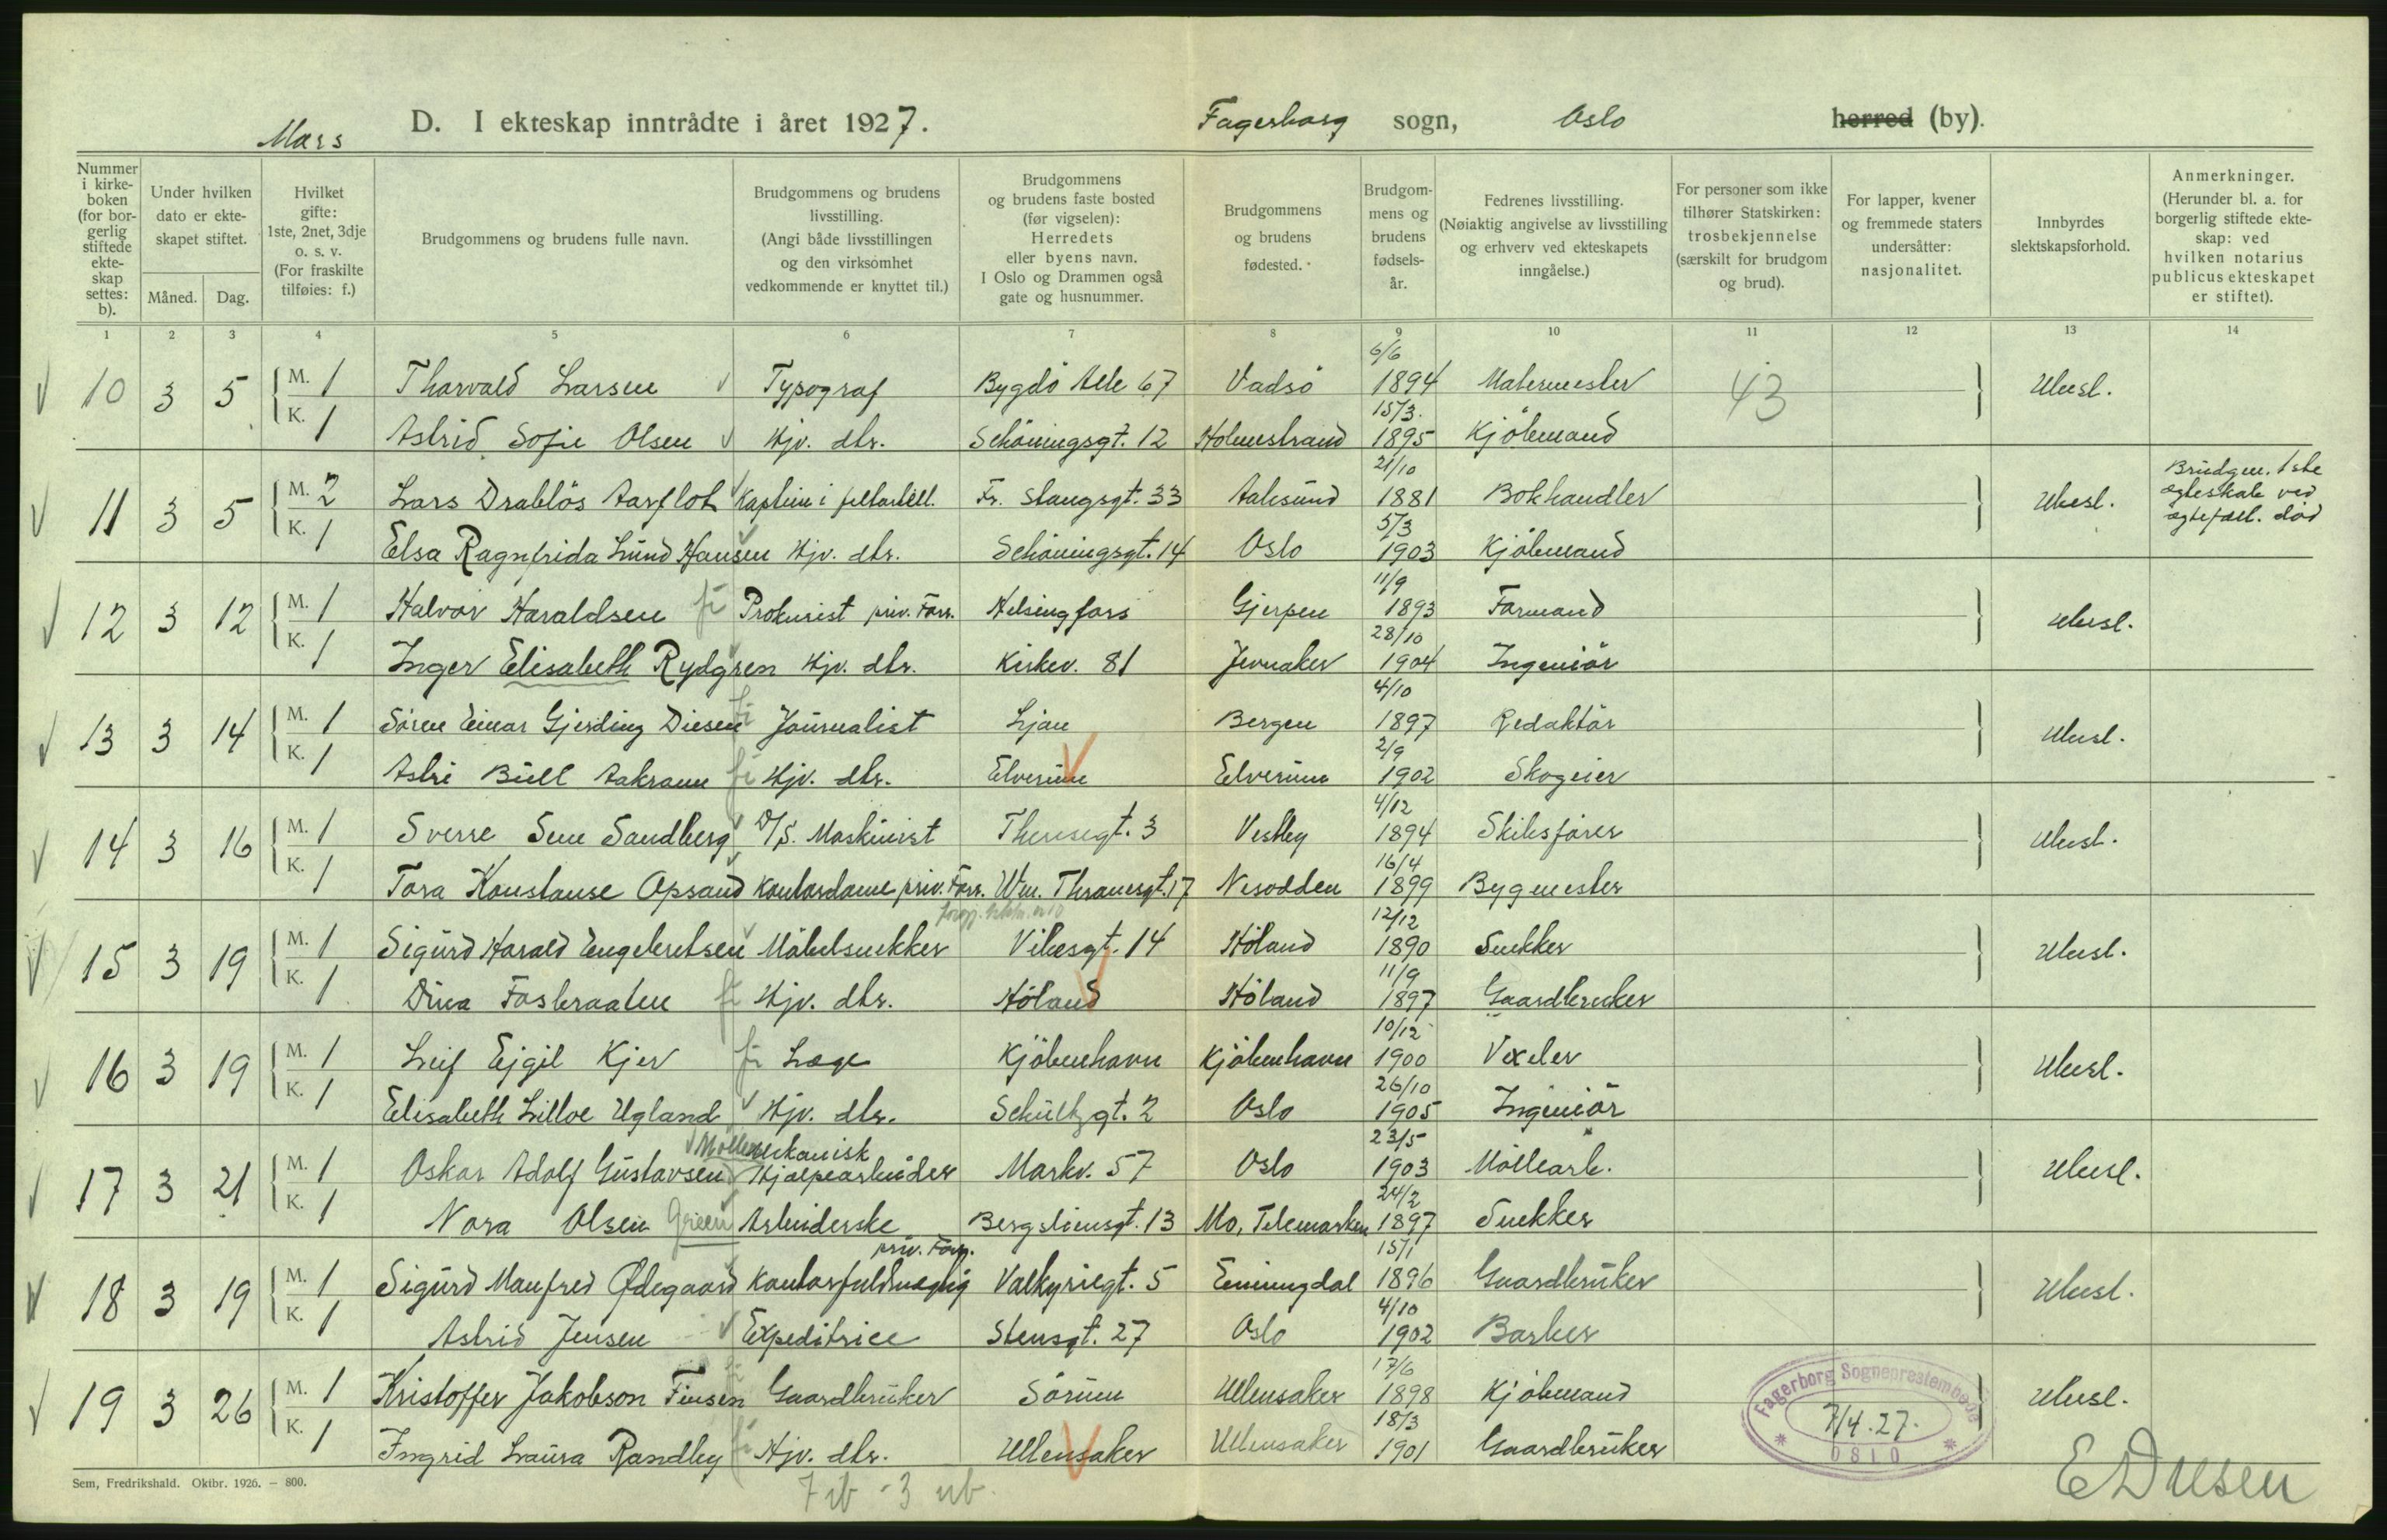 Mars
D. I ekteskap inntrådte i året 1927.
Fagerborg sogn, Oslo herred (by).
Nummer i kirke-boken (for bor-gerlig stiftede ekte-skap settes: b).
Under hvilken dato er ekte-skapet stiftet.
Måned. Dag.
Hvilket gifte: 1ste, 2net, 3dje o. s. v. (For fraskilte tilføies: f.)
Brudgommens og brudens fulle navn.
Brudgommens og brudens livsstilling. (Angi både livsstillingen og den virksomhet vedkommende er knyttet til.)
Brudgommens og brudens faste bosted (før vigselen): Herredets eller byens navn. I Oslo og Drammen også gate og husnummer.
Brudgommens og brudens fødested.
Brudgom-mens og brudens fødsels-år.
Fedrenes livsstilling. (Nøiaktig angivelse av livsstilling og erhverv ved ekteskapets inngåelse.)
For personer som ikke tilhører Statskirken: trosbekjennelse (særskilt for brudgom og brud).
For lapper, kvener og fremmede staters undersåtter: nasjonalitet.
Innbyrdes slektskapsforhold.
Anmerkninger. (Herunder bl. a. for borgerlig stiftede ekte-skap: ved hvilken notarius publicus ekteskapet er stiftet).
1 2 3 4 5 6 7 8 9 10 11 12 13 14
10 3 5 M. 1 Thorvald Larsen Typograf Bygdö Alle 67 Vadsö 6/6 1894 Malermester 43 Ubesl.
K. 1 Astrid Sofie Olsen Hjv. dtr. Schöningsgt. 12 Holmestrand 15/3. 1895 Kjöbmand
11 3 5 M. 2 Lars Drabløs Aarflot Kaptein i feltartill. Fr. Stangsgt. 33 Aalesund 21/10 1881 Bokhandler Ubesl. Brudgm. 1ste ægteskab ved ægtefæll. död
K. 1 Elsa Ragnfrida Lund Hansen Hjv. dtr. Schöningsgt. 14 Oslo 5/3 1903 Kjöbmand
12 3 12 M. 1 Halvor Haraldsen Prokurist priv. Forr. Helsingfors Gjerpen 11/9 1893 Formand Ubesl.
K. 1 Inger Elisabeth Rydgren Hjv. dtr. Kirkev. 81 Jevnaker 28/10 1904 Ingeniör
13 3 14 M. 1 Sören Einar Gjerding Diesen Journalist Ljan Bergen 4/10 1897 Redaktör Ubesl.
K. 1 Astri Bull Aakrann Hjv. dtr. Elverum Elverum 2/9 1902 Skogeier
14 3 16 M. 1 Sverre Sem Sandberg D/S. Maskinist Theresegt. 3 Vestby 4/12 1894 Skibsförer Ubesl.
K. 1 Tora Konstanse Opsand Kontordame priv. Forr. Wm. Thranesgt. 17 Nesodden 16/4 1899 Bygmester
15 3 19 M. 1 Sigurd Harald Engebretsen Möbelsnekker Vibesgt. 14 Höland 12/12 1890 Snekker Ubesl.
K. 1 Dina Fosbraaten Hjv. dtr. Höland Höland 11/9 1897 Gaardbruker
16 3 19 M. 1 Leif Ejgil Kjer Læge Kjöbenhavn Kjöbenhavn 10/12 1900 Vexeler Ubesl.
K. 1 Elisabeth Lilloe Ugland Hjv. dtr. Schultzgt. 2 Oslo 26/10 1905 Ingeniör
17 3 21 M. 1 Oskar Adolf Gustavsen mekanisk Hjælpearbeider Markv. 57 Oslo 23/5 1903 Möllearb. Ubesl.
K. 1 Nora Olsen Green Arbeiderske Bergsliensgt. 13 Mo, Telemarken 24/2 1897 Snekker
18 3 19 M. 1 Sigurd Manfred Ødegaard Kontorfuldmægtig priv. Forr. Valkyriegt. 5 Enningdal 15/1 1896 Gaardbruker Ubesl.
K. 1 Astrid Jensen Expeditrice Stensgt. 27 Oslo 4/10 1902 Barber
19 3 26 M. 1 Kristoffer Jakobson Finsen Gaardbruker Sörum Ullensaker 17/6 1898 Kjöbmand Ubesl.
K. 1 Ingrid Laura Randby Hjv. dtr. Ullensaker Ullensaker 18/3 1901 Gaardbruker
Fagerborg Sogneprestembede
7/4.27.
0810
Sem, Fredrikshald. Oktbr. 1926. – 800.
7 ib - 3 ub.
E Diesen